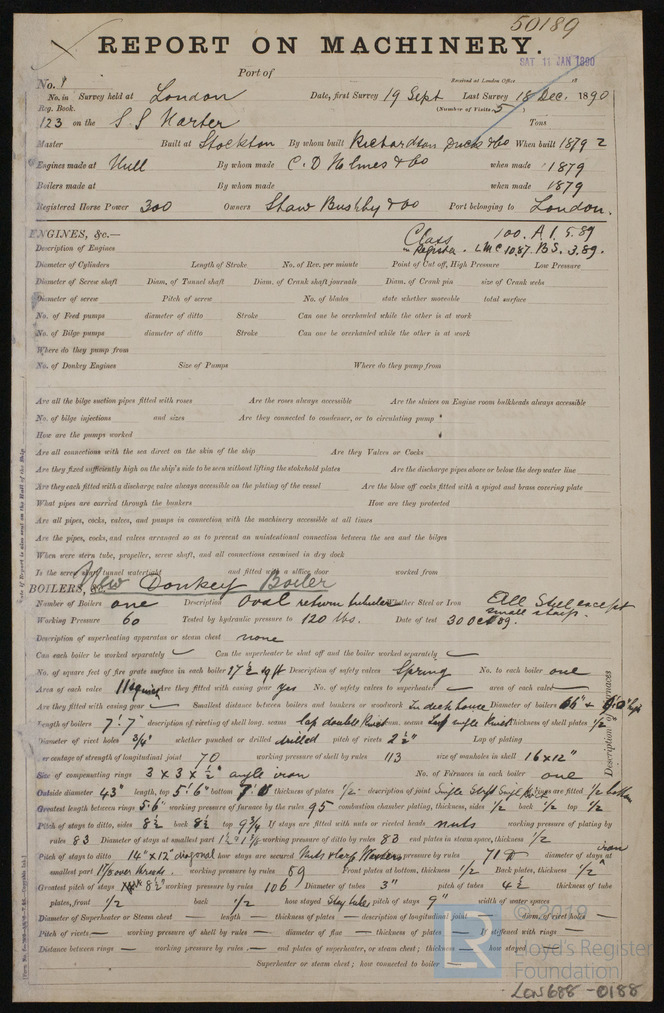 50189
REPORT ON MACHINERY.
SAT 11 JAN 1890
Port of
Received at London Office 18
No. 1
No. in Survey held at London Date, first Survey 19 Sept Last Survey 18 Dec. 1890
Reg. Book. (Number of Visits 5)
123 on the S S Harter Tons
Master Built at Stockton By whom built Richardson Duck & Co When built 1879 2
Engines made at Hull By whom made C. D Holmes & Co when made 1879
Boilers made at By whom made when made 1879
Registered Horse Power 300 Owners Shaw Bushby & Co Port belonging to London.
ENGINES, &c.— Class 100. A 1. 5.89
Description of Engines in Register. LMC 10.87. B S. 3.89.
Diameter of Cylinders Length of Stroke No. of Rev. per minute Point of Cut off, High Pressure Low Pressure
Diameter of Screw shaft Diam. of Tunnel shaft Diam. of Crank shaft journals Diam. of Crank pin size of Crank webs
Diameter of screw Pitch of screw No. of blades state whether moveable total surface
No. of Feed pumps diameter of ditto Stroke Can one be overhauled while the other is at work
No. of Bilge pumps diameter of ditto Stroke Can one be overhauled while the other is at work
Where do they pump from
No. of Donkey Engines Size of Pumps Where do they pump from
Are all the bilge suction pipes fitted with roses Are the roses always accessible Are the sluices on Engine room bulkheads always accessible
No. of bilge injections and sizes Are they connected to condenser, or to circulating pump
How are the pumps worked
Are all connections with the sea direct on the skin of the ship Are they Valves or Cocks
Are they fixed sufficiently high on the ship's side to be seen without lifting the stokehold plates Are the discharge pipes above or below the deep water line
Are they each fitted with a discharge valve always accessible on the plating of the vessel Are the blow off cocks fitted with a spigot and brass covering plate
What pipes are carried through the bunkers How are they protected
Are all pipes, cocks, valves, and pumps in connection with the machinery accessible at all times
Are the pipes, cocks, and valves arranged so as to prevent an unintentional connection between the sea and the bilges
When were stern tube, propeller, screw shaft, and all connections examined in dry dock
Is the screw shaft tunnel watertight and fitted with a sluice door worked from
BOILERS, &c.— New Donkey Boiler
Number of Boilers one Description Oval return tubular Whether Steel or Iron All Steel except small stays.
Working Pressure 60 Tested by hydraulic pressure to 120 lbs. Date of test 30 Oct 89.
Description of superheating apparatus or steam chest none
Can each boiler be worked separately Can the superheater be shut off and the boiler worked separately
No. of square feet of fire grate surface in each boiler 17½ sq ft Description of safety valves Spring No. to each boiler one
Area of each valve 11 square Are they fitted with easing gear yes No. of safety valves to superheater area of each valve
Are they fitted with easing gear Smallest distance between boilers and bunkers or woodwork In deck house Diameter of boilers
Length of boilers 7' 7" description of riveting of shell long. seams lap double Rivet circum. seams Lap single Rivet thickness of shell plates ½"
Diameter of rivet holes ¾" whether punched or drilled drilled pitch of rivets 2½" Lap of plating
Per centage of strength of longitudinal joint 70 working pressure of shell by rules 113 size of manholes in shell 16 x 12"
Size of compensating rings 3 x 3 x ½" angle iron No. of Furnaces in each boiler one
Outside diameter 43" length, top 5' 6" bottom thickness of plates ½" description of joint rings are fitted
Greatest length between rings 5' 6" working pressure of furnace by the rules 95 combustion chamber plating, thickness, sides ½ back ½ top ½
Pitch of stays to ditto, sides 8½ back 8½ top 9¾ If stays are fitted with nuts or riveted heads nuts working pressure of plating by
rules 83 Diameter of stays at smallest part working pressure of ditto by rules 83 end plates in steam space, thickness ½"
Pitch of stays to ditto 14" x 12" diagonal how stays are secured Nuts & large Washers pressure by rules diameter of stays at
smallest part working pressure by rules 69 Front plates at bottom, thickness ½ Back plates, thickness ½"
Greatest pitch of stays 8½" working pressure by rules 106 Diameter of tubes 3" pitch of tubes 4½ thickness of tube
plates, front ½ back ½ how stayed Stay tubes pitch of stays 9" width of water spaces
Diameter of Superheater or Steam chest — length — thickness of plates — description of longitudinal joint diam. of rivet holes —
Pitch of rivets — working pressure of shell by rules — diameter of flue — thickness of plates — If stiffened with rings —
Distance between rings — working pressure by rules — end plates of superheater, or steam chest; thickness — how stayed
Superheater or steam chest; how connected to boiler —
Description of Furnaces
© 2019
Lloyd's Register
Foundation
LR
LON688-0188